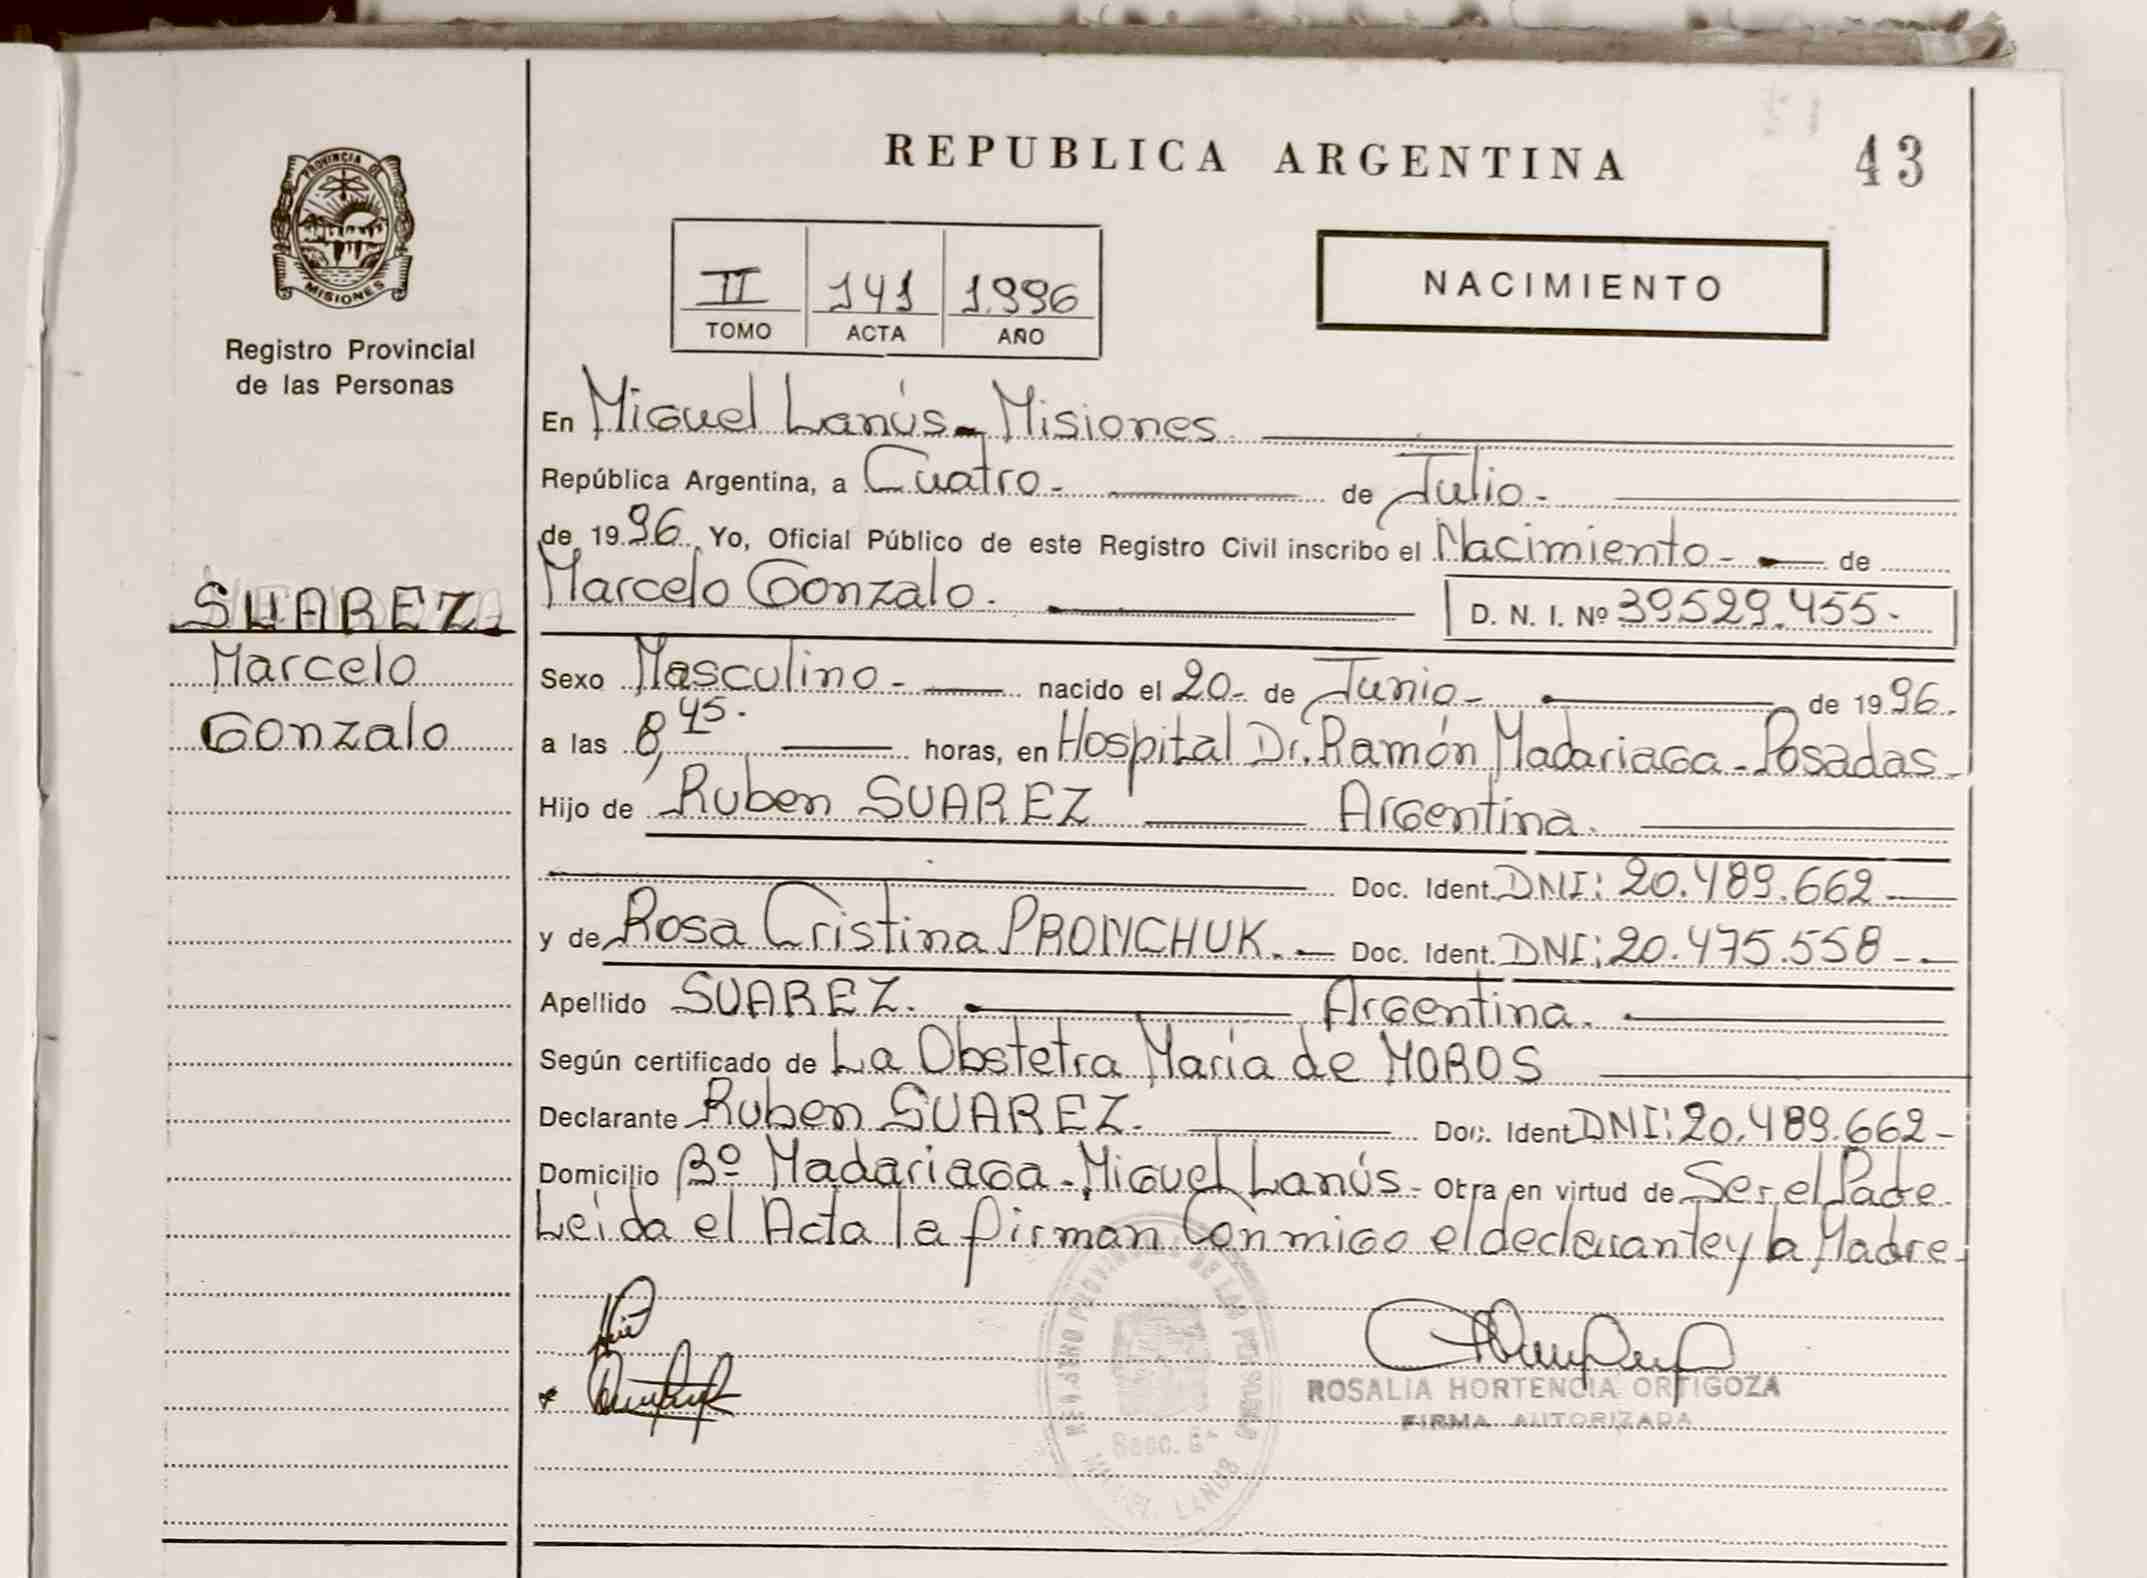 REPUBLICA ARGENTINA
43
PROVINCIA DE
MISIONES
Registro Provincial
de las Personas
II 141 1.996
TOMO ACTA AÑO
NACIMIENTO
En Miguel Lanús - Misiones.
República Argentina, a Cuatro - de Julio -
de 1996 Yo, Oficial Público de este Registro Civil inscribo el Nacimiento - de
Marcelo Gonzalo. D. N. I. Nº 39529.455 -
SUAREZ.
Marcelo
Gonzalo
Sexo Masculino - nacido el 20 - de Junio - de 1996.
a las 8,45. horas, en Hospital Dr. Ramón Madariaga - Posadas -
Hijo de Ruben SUAREZ Argentina.
Doc. Ident. DNI: 20.489.662
y de Rosa Cristina PRONCHUK. Doc. Ident. DNI: 20.475.558 -
Apellido SUAREZ. Argentina.
Según certificado de La Obstetra María de MOROS
Declarante Ruben SUAREZ. Doc. Ident DNI: 20.489.662 -
Domicilio Bº Madariaga - Miguel Lanús - Obra en virtud de Ser el Padre.
Leida el Acta la firman Conmigo el declarante y la Madre -
ROSALIA HORTENCIA ORTIGOZA
FIRMA AUTORIZADA